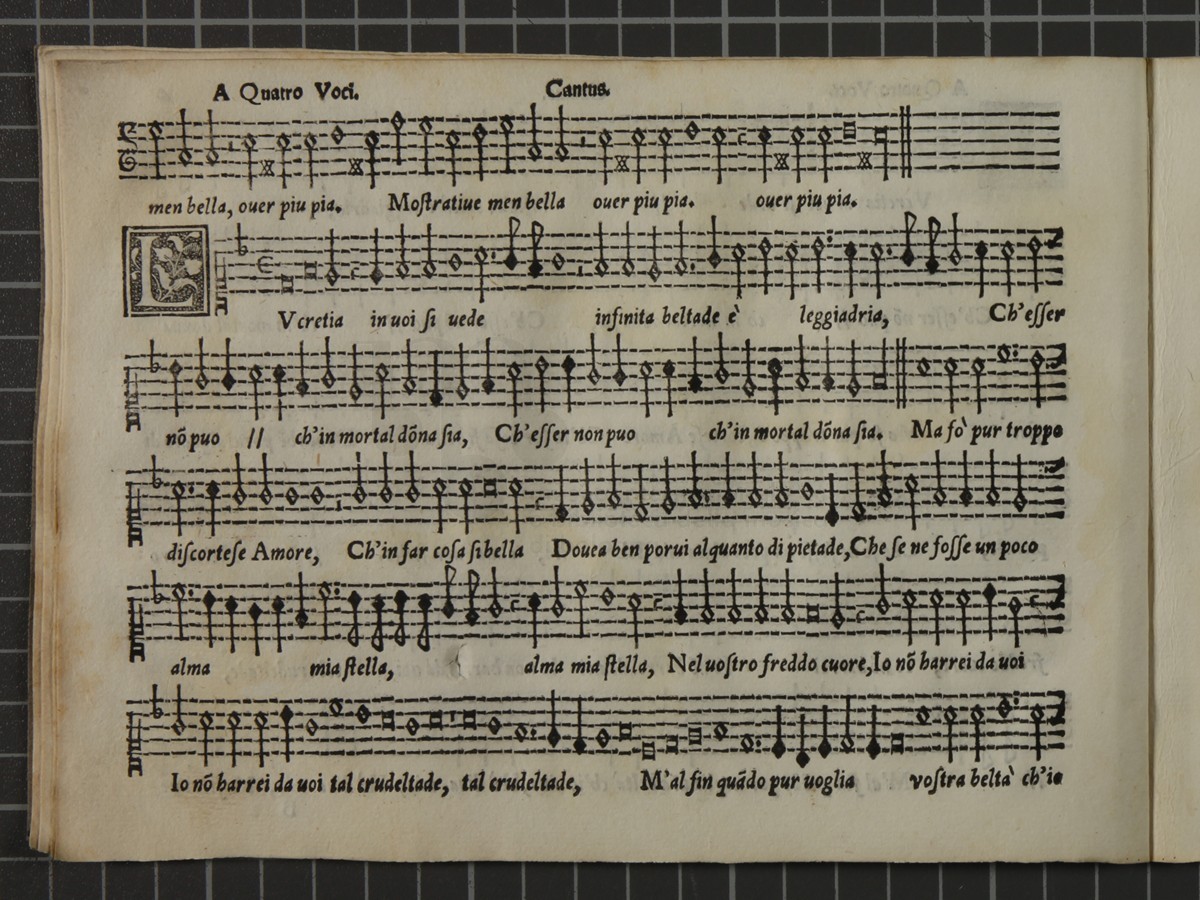 A Quatro Voci. Cantus.
men bella, ouer piu pia. Moſtratiue men bella ouer piu pia. ouer piu pia.
L Vcretia in uoi ſi uede infinita beltade è leggiadria, Ch'eſſer
nō puo // ch'in mortal dōna ſia, Ch'eſſer non puo ch'in mortal dōna ſia. Ma fo' pur troppo
diſcorteſe Amore, Ch'in far coſa ſi bella Douea ben porui alquanto di pietade, Che ſe ne foſſe un poco
alma mia ſtella, alma mia ſtella, Nel uoſtro freddo cuore, Io nō harrei da uoi
Io nō harrei da uoi tal crudeltade, tal crudeltade, M'al fin quādo pur uoglia voſtra belta' ch'io